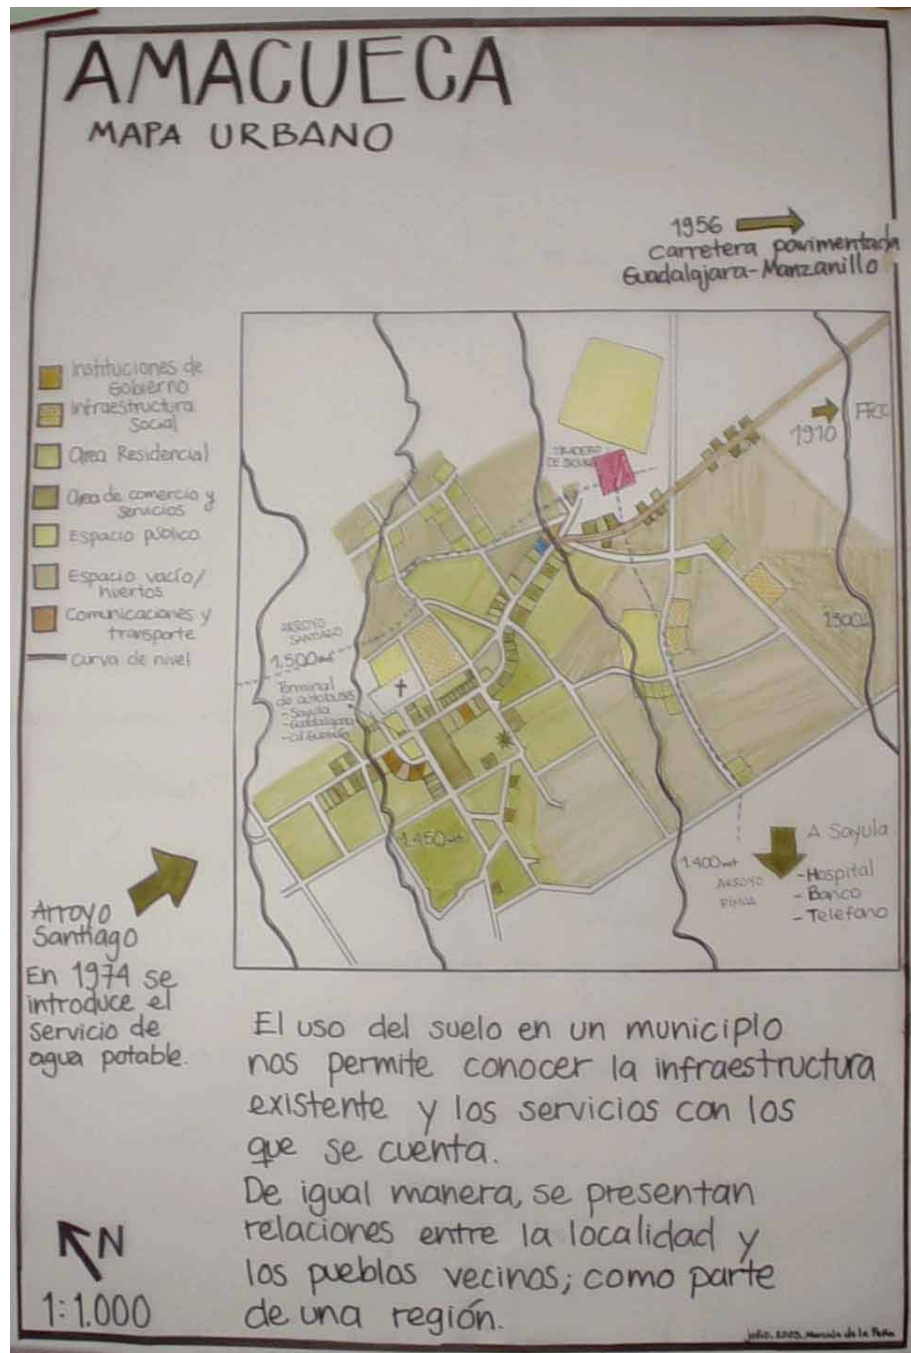 AMACUECA
MAPA URBANO
1956
Carretera pavimentada
Guadalajara-Manzanillo
Instituciones de
Gobierno
Infraestructura
Social
Area Residencial
Area de comercio y
servicios
Espacio público
Espacio vacío/
huertos
Comunicaciones y
transporte
Curva de nivel
TIRADERO
DE BASURA
1910
FFCC
ARROYO
SANTIAGO
1.500
Terminal
de autobuses
- Sayula
- Guadalajara
- Cd. Guzmán
1.450
1.400
ARROYO
A Sayula
- Hospital
- Banco
- Teléfono
Arroyo
Santiago
En 1974 se
introduce el
servicio de
agua potable.
El uso del suelo en un municipio
nos permite conocer la infraestructura
existente y los servicios con los
que se cuenta.
De igual manera, se presentan
relaciones entre la localidad y
los pueblos vecinos; como parte
de una región.
N
1:1.000
julio, 2003, Marcela de la Peña